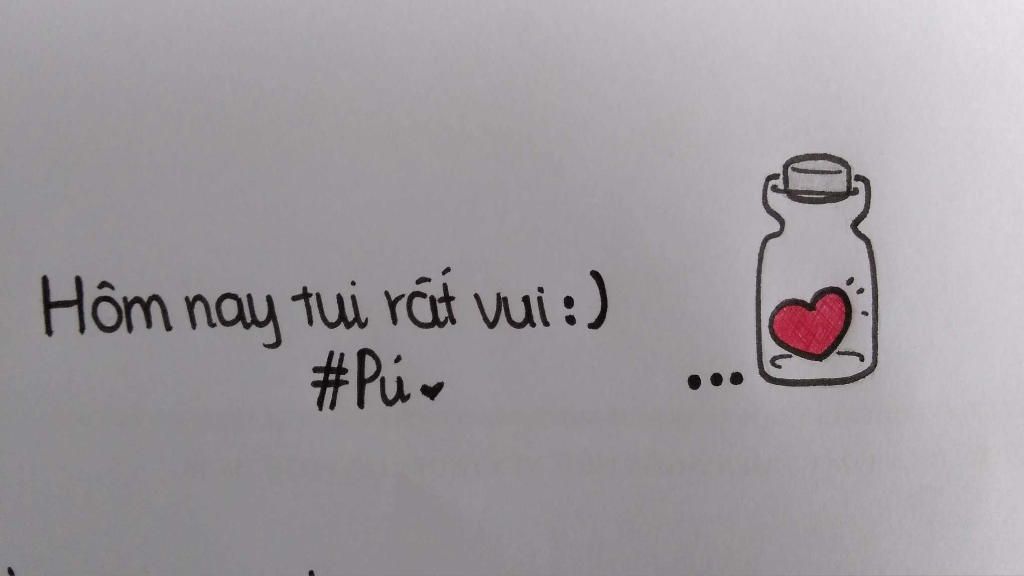 Hôm nay tui rất vui :)
#Pú
...